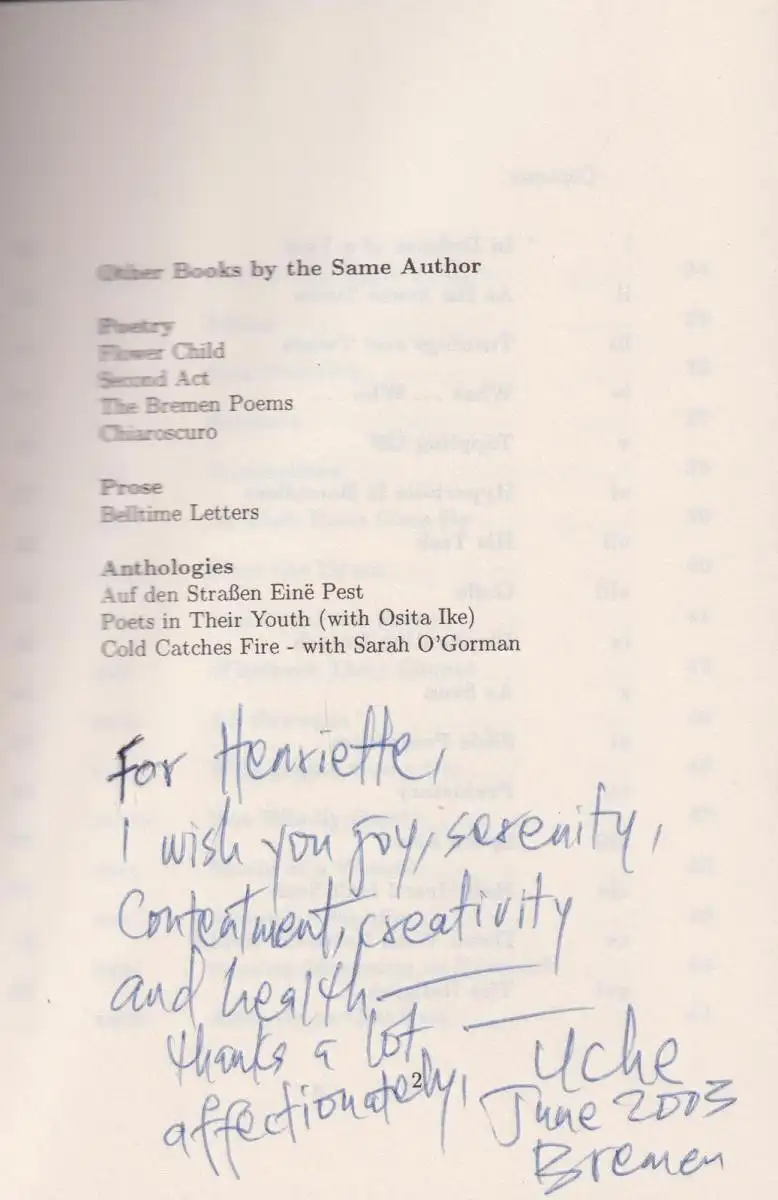 Other Books by the Same Author
Poetry
Flower Child
Second Act
The Bremen Poems
Chiaroscuro
Prose
Belltime Letters
Anthologies
Auf den Straßen Einë Pest
Poets in Their Youth (with Osita Ike)
Cold Catches Fire - with Sarah O'Gorman
For Henriette,
I wish you joy, serenity,
Contentment, creativity
and health
thanks a lot,
affectionately,
Uche
June 2003
Bremen
2